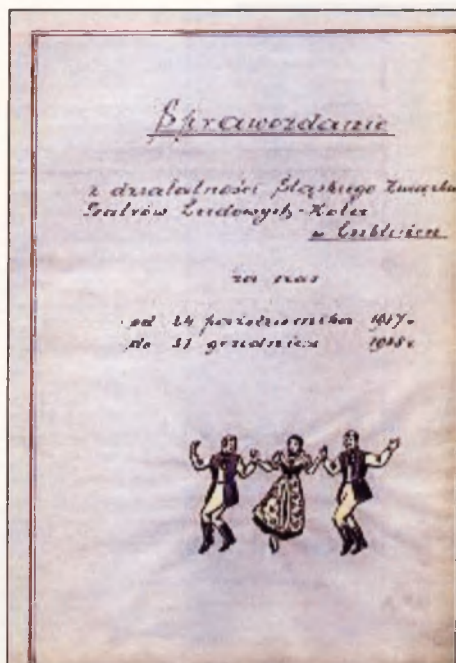 Sprawozdanie
z działalności Śląskiego Związku
Teatrów Ludowych-Koła
w Lublińcu
za czas
od 24 października
do 31 grudnia